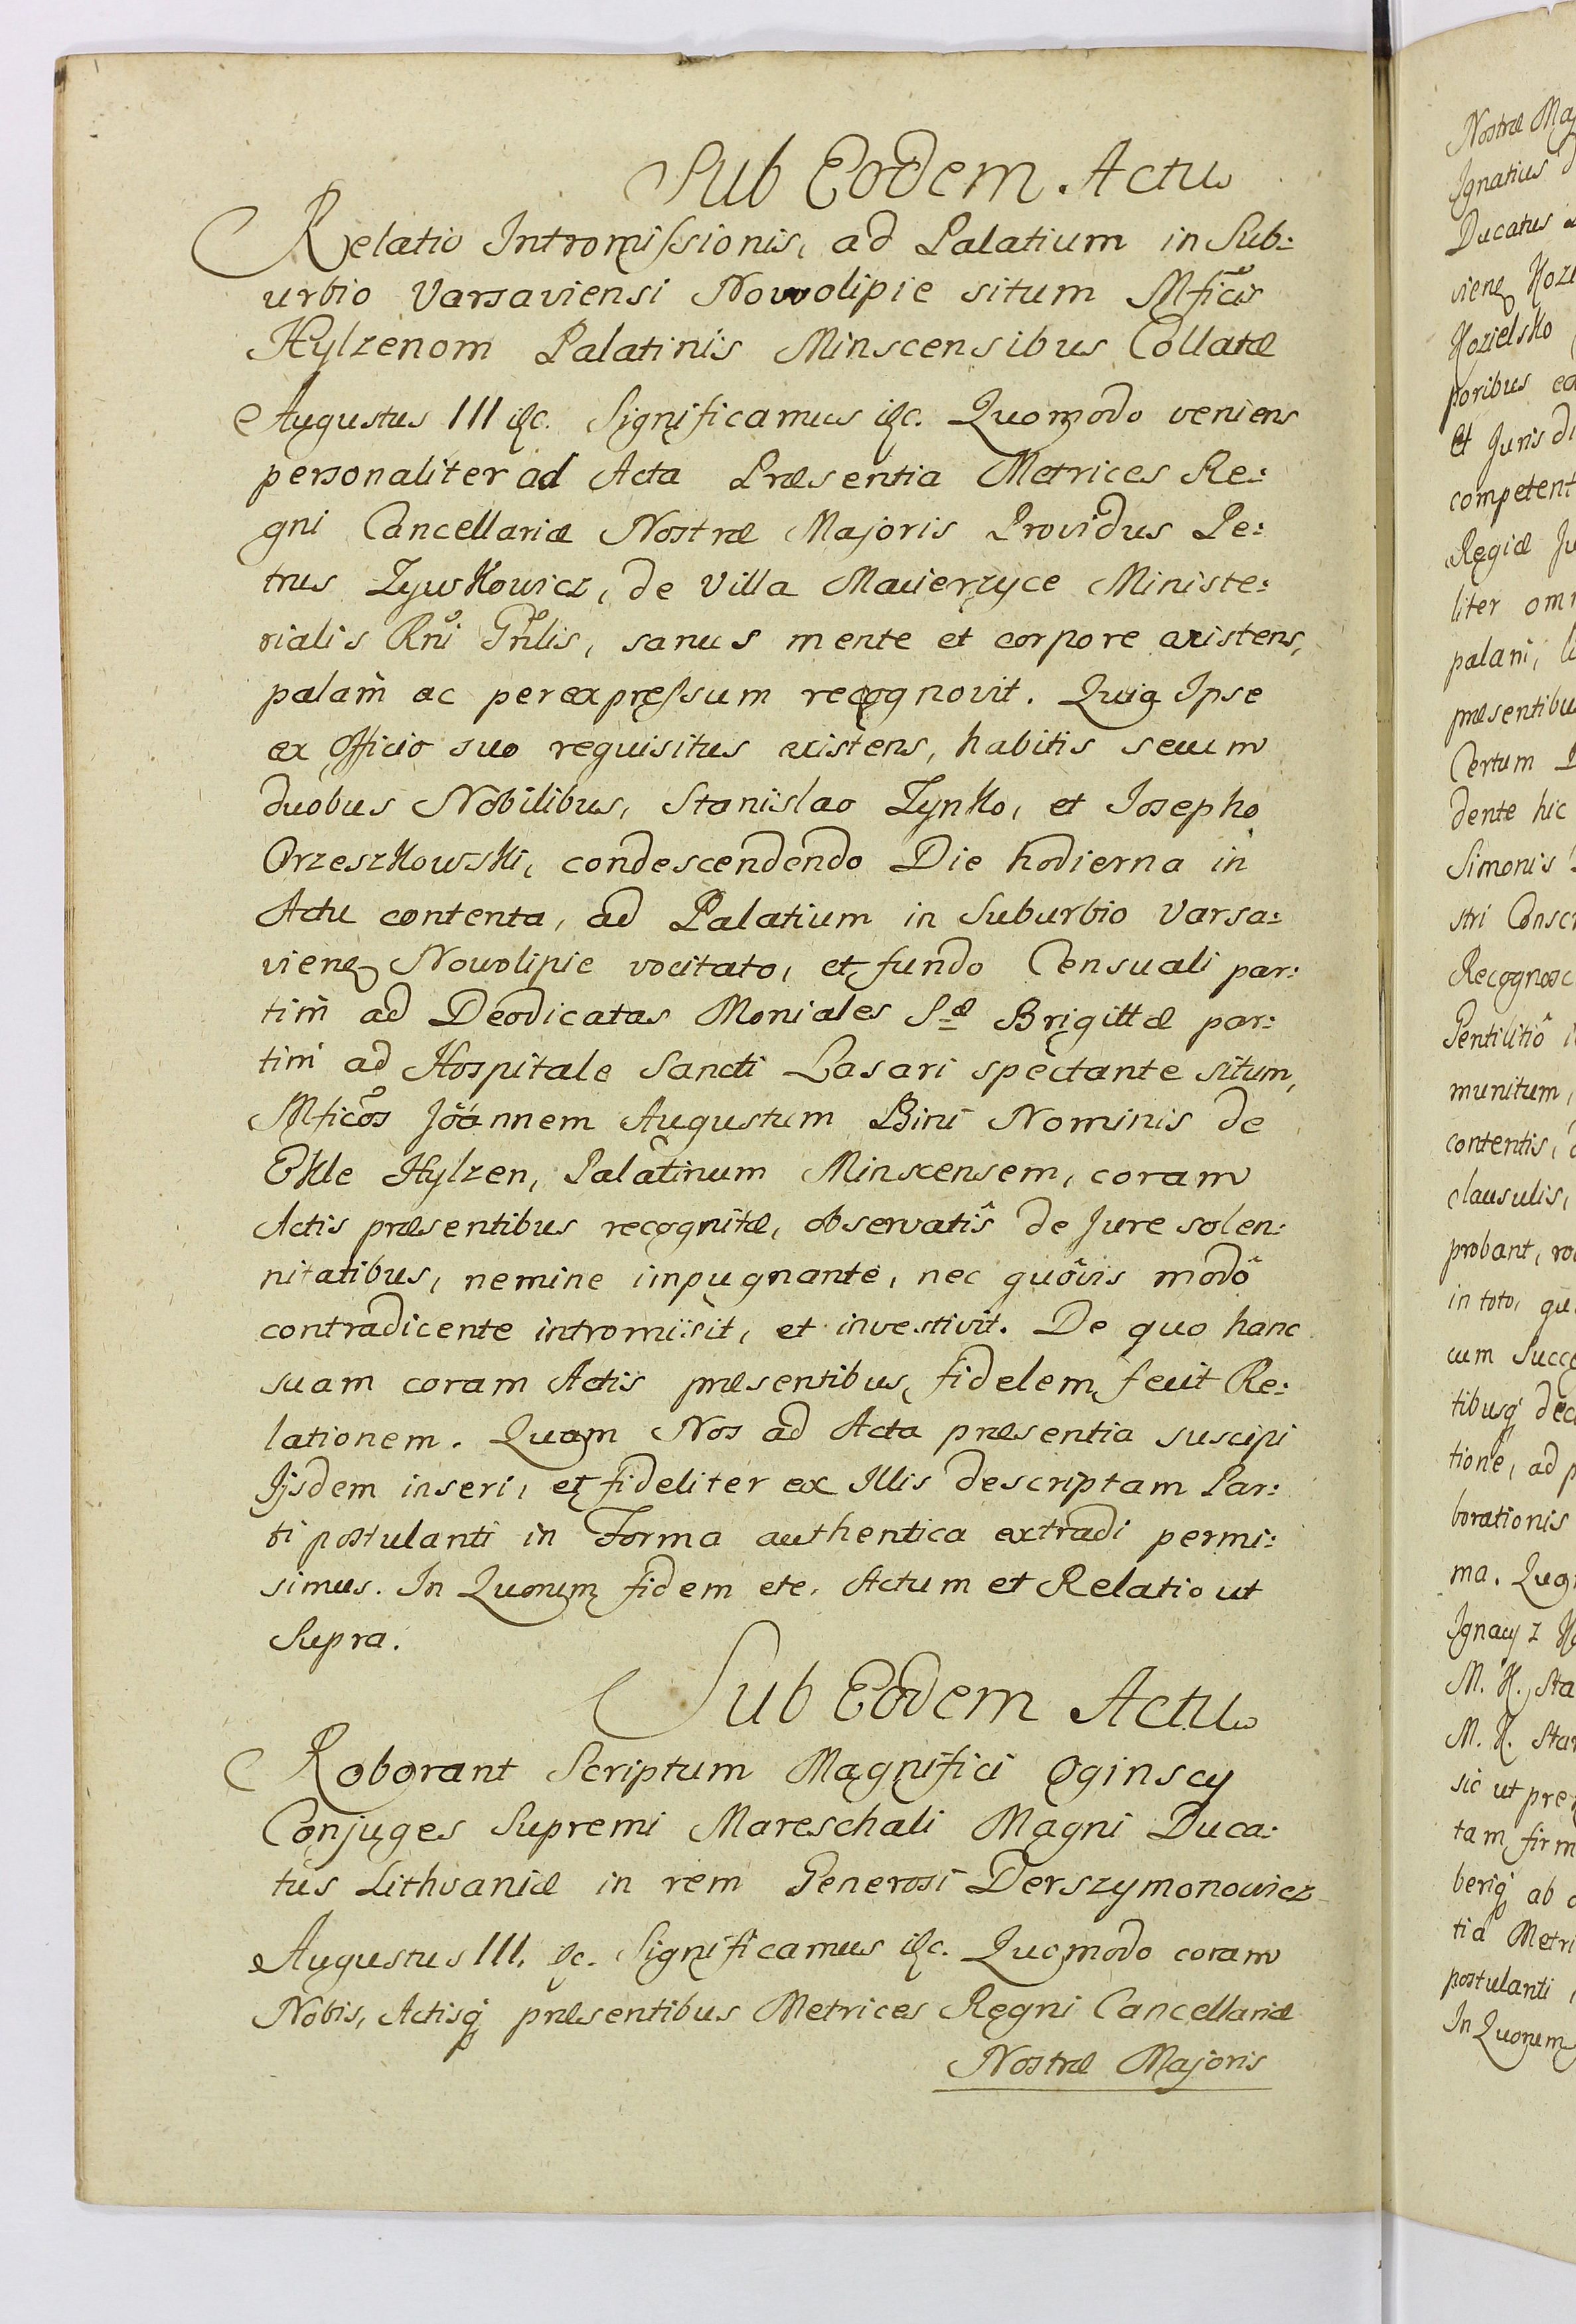 Sub Eodem Actu
Relatio Intromissionis, ad Palatium in Sub:
urbio Varsaviensi Nowolipie situm Mficis
Hylzenom Palatinis Minscensibus Collatæ
Augustus III etc. Significamus etc. Quomodo veniens
personaliter ad Acta Præsentia Metrices Re:
gni Cancellariæ Nostræ Majoris Providus Pe:
trus Zywkowicz, de Villa Macierzyce Ministe:
rialis Rni Gnlis, sanus mente et corpore existens,
palam ac per expressum recognovit. Quia Ipse
ex Officio suo requisitus existens, habitis secum
duobus Nobilibus, Stanislao Zynko, et Josepho
Orzeszkowski, condescendendo Die hodierna in
Actu contenta, ad Palatium in Suburbio Varsa:
vienq Nowolipie vocitato, et fundo Censuali par:
tim ad Deodicatas Moniales Sæ Brigittæ par:
tim ad Hospitale Sancti Lasari spectante situm,
Mficos Joannem Augustum Bini Nominis de
Ekle Hylzen, Palatinum Minscensem, coram
Actis præsentibus recognitæ, observatis de Jure solen:
nitatibus, nemine impugnante, nec quovis modô
contradicente intromisit, et investivit. De quo hanc
suam coram Actis præsentibus, fidelem fecit Re:
lationem. Quam Nos ad Acta præsentia suscipi
Ijsdem inseri, et fideliter ex Illis descriptam Par:
ti postulanti in Forma authentica extradi permi:
simus. In Quorum fidem etc. Actum et Relatio ut
Supra.
Sub Eodem Actu
Roborant Scriptum Magnifici Oginscy
Conjuges Supremi Mareschali Magni Duca:
tus Lithvaniæ in rem Generosi Derszymonowicz
Augustus III. etc. Significamus etc. Quomodo coram
Nobis, Actisq præsentibus Metrices Regni Cancellariæ
Nostræ Majoris
Nostræ Maj
Ignatius
Ducatus
vienq Koze
Kozielsko
poribus
et Juris di
competent
Regiæ Ju
liter om
palam,
præsentibu
Certum
dente hic
Simonis
stri Conscr
Recognosc
Gentilitiô
munitum,
contentis,
clausulis,
probant,
in toto,
cum Succe
tibusq dec
tione, ad p
borationis
ma.
Ignacy z
M. K. Sta
M. K. Star
sic ut præ
tam firm
beriq ab
tia Metri
postulanti
In Quorum